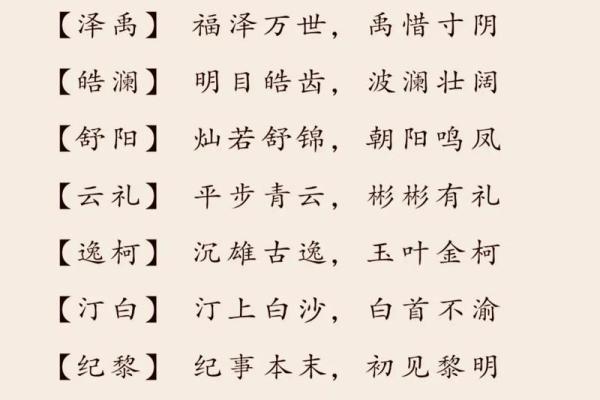 【泽禹】 福泽万世，禹惜寸阴
【皓澜】 明目皓齿，波澜壮阔
【舒阳】 灿若舒锦，朝阳鸣凤
【云礼】 平步青云，彬彬有礼
【逸柯】 沉雄古逸，玉叶金柯
【汀白】 汀上白沙，白首不渝
【纪黎】 纪事本末，初见黎明